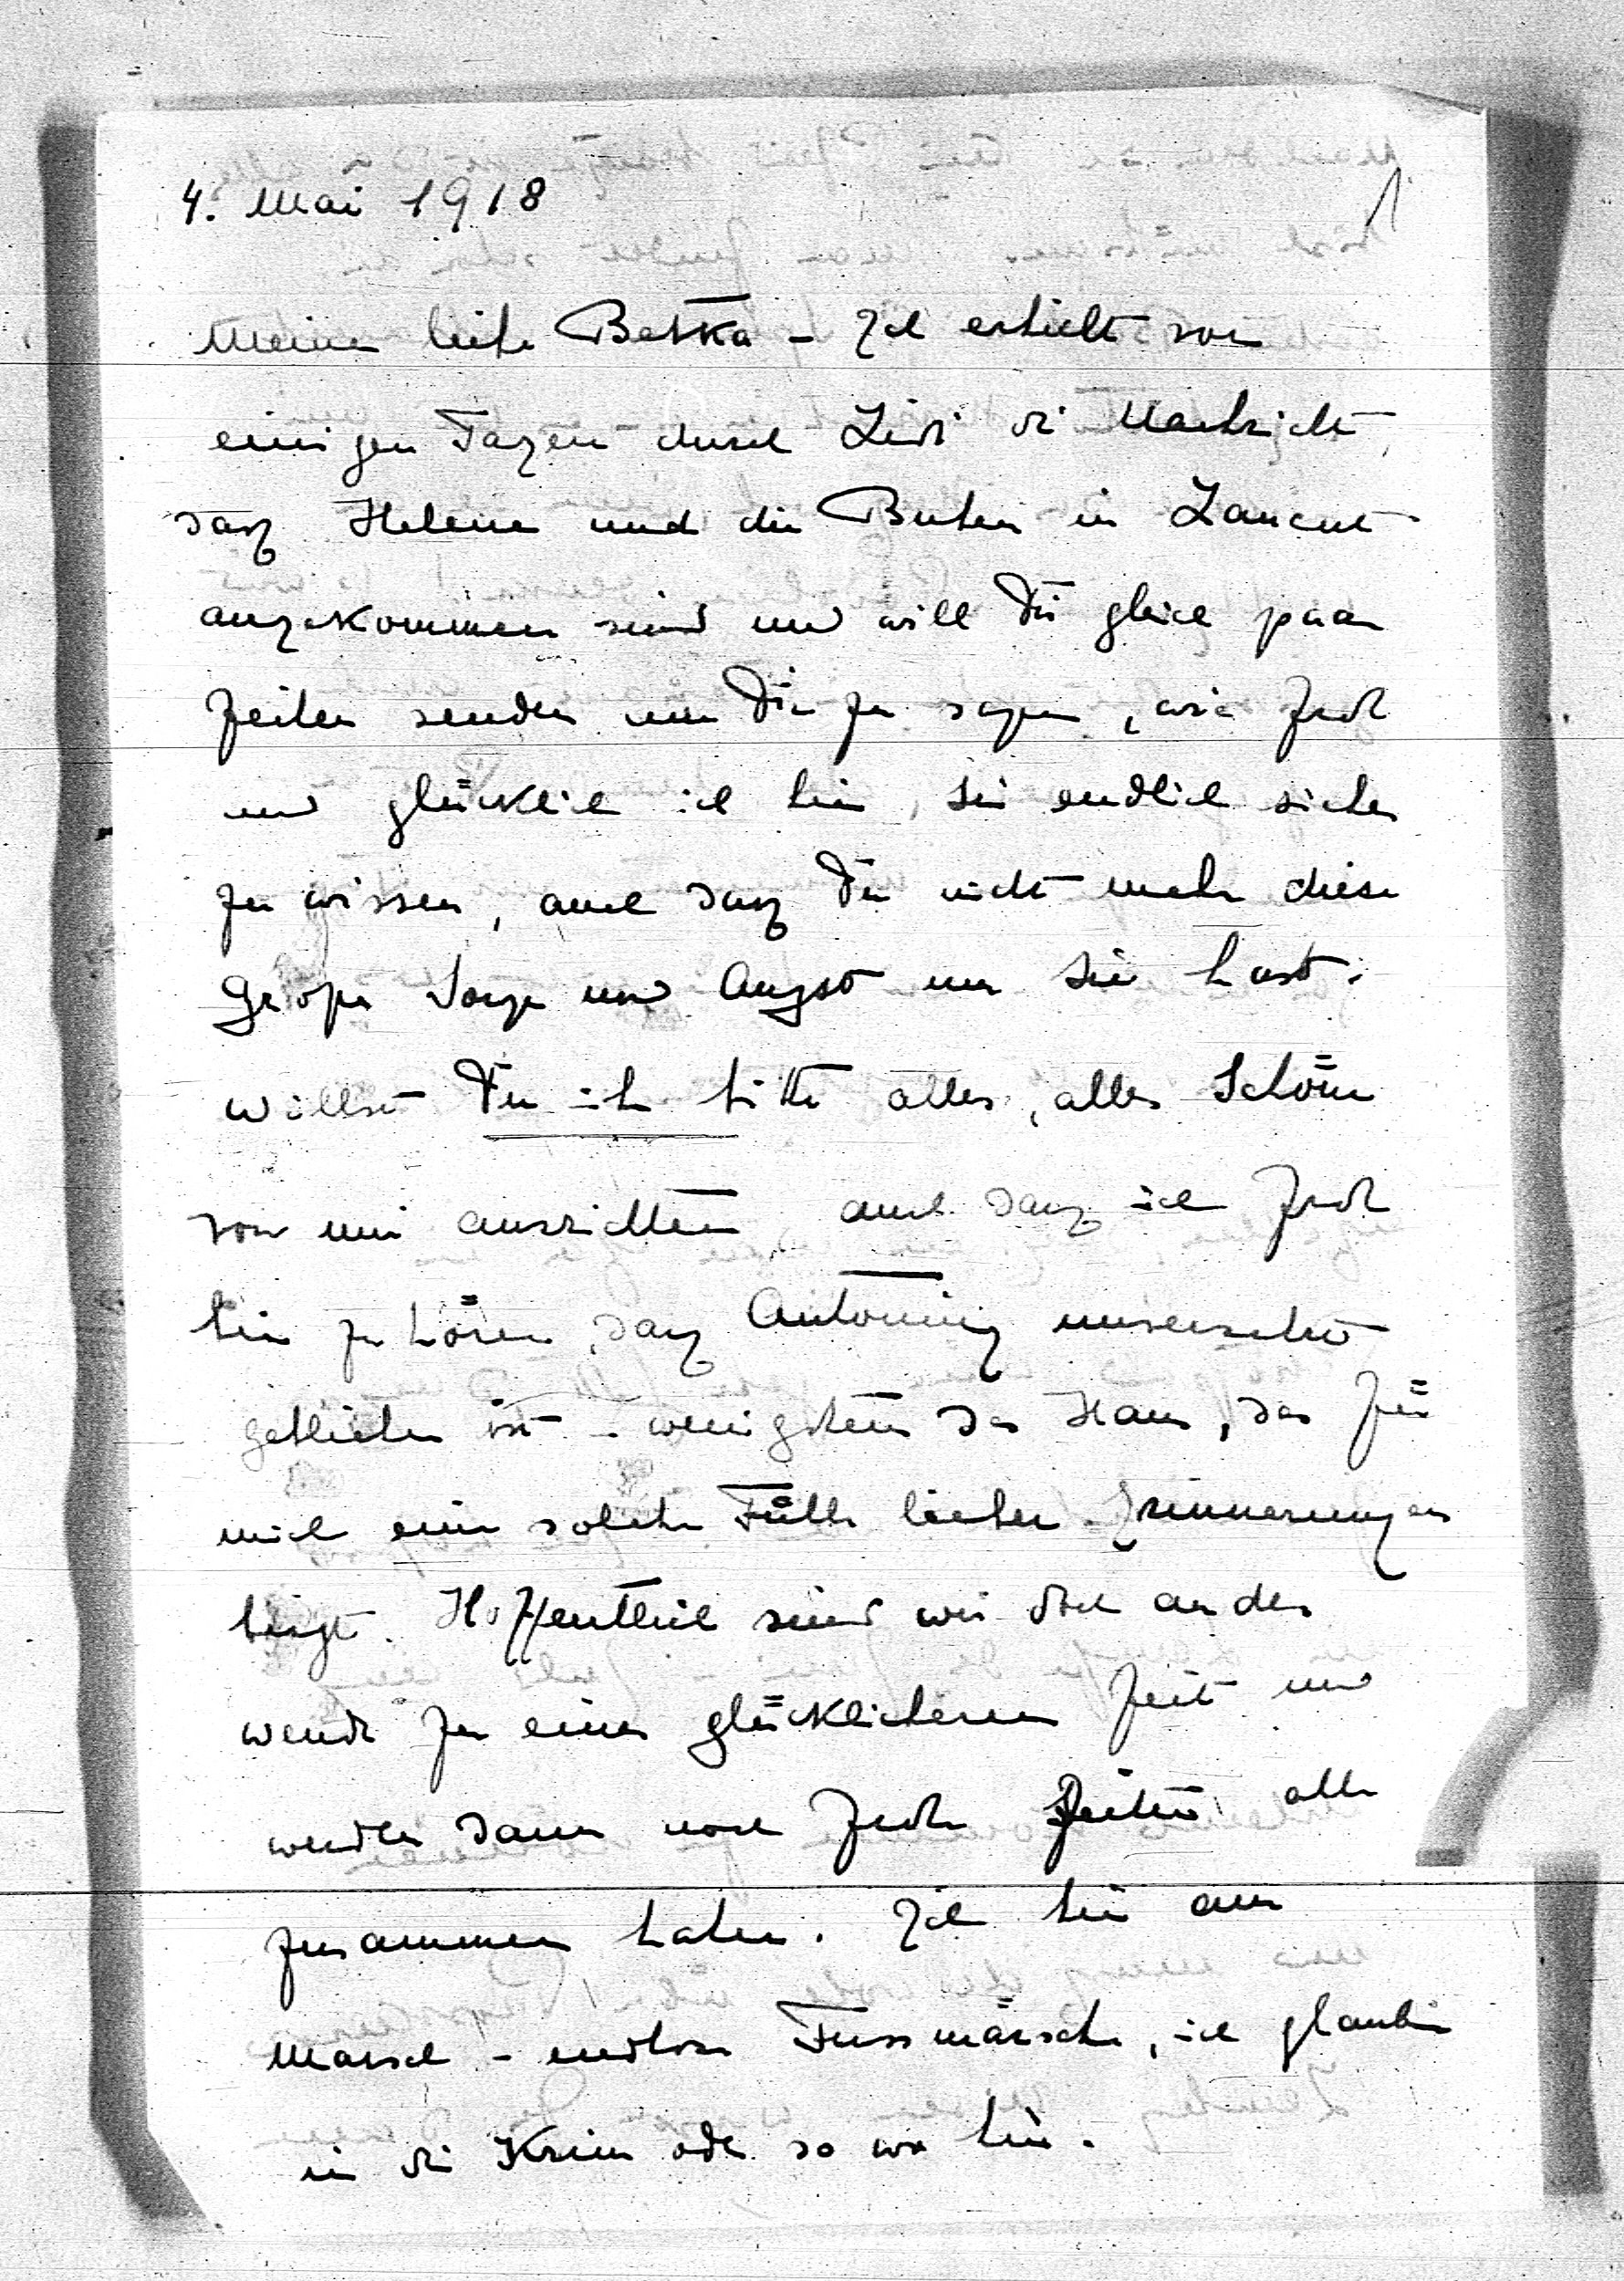 4. Mai 1918
1
Meine liebe Betka - Ich erhielt vor
einigen Tagen durch die Nachricht,
dass Helene und die Buben in Lancut
angekommen sind und will Dir gleich paar
Zeilen senden um Dir zu sagen, wie froh
und glücklich ich bin, sie endlich sicher
zu wissen, auch dass Du nicht mehr diese
grosse Sorge und Angst um sie hast.
Willst Du ihr bitte alles, alles Schöne
von mir ausrichten auch dass ich froh
bin zu hören, dass Antoniny unversehrt
geblieben ist - wenigstens das Haus, das für
mich eine solche Fülle lieber Erinnerungen
birgt. Hoffentlich sind wir doch an der
Wende zu einer glücklicheren Zeit und
werden dann noch frohe Zeiten alle
zusammen haben. Ich bin am
Marsch - endlose Fussmärsche, ich glaube
in die Krim oder so wo hin.